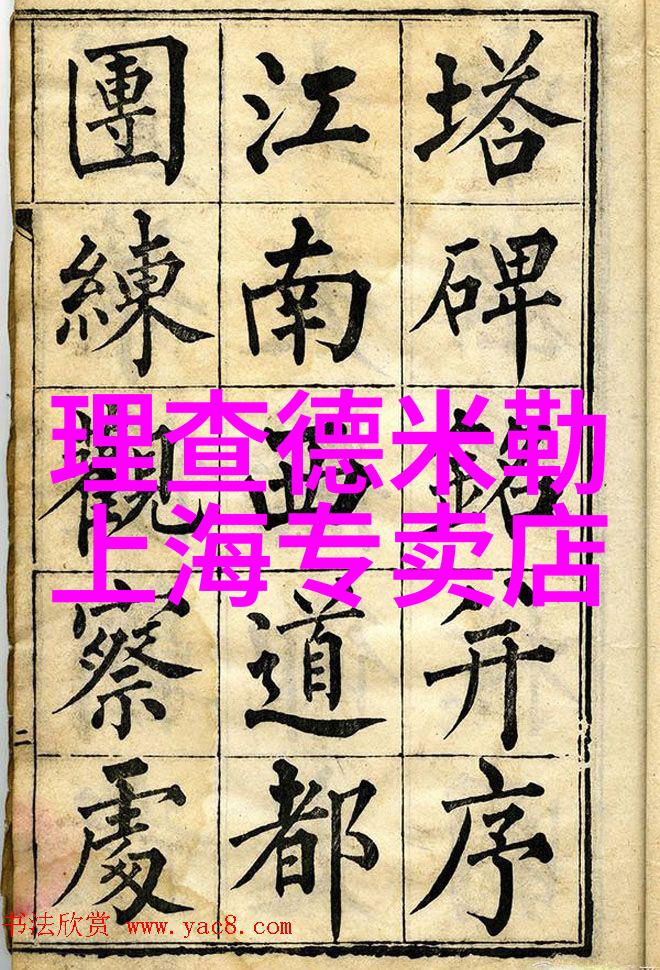 塔碑銘并序
江南西道都
團練觀察處
二
理查德米勒
上海专卖店
书法欣赏 www.yac8.com